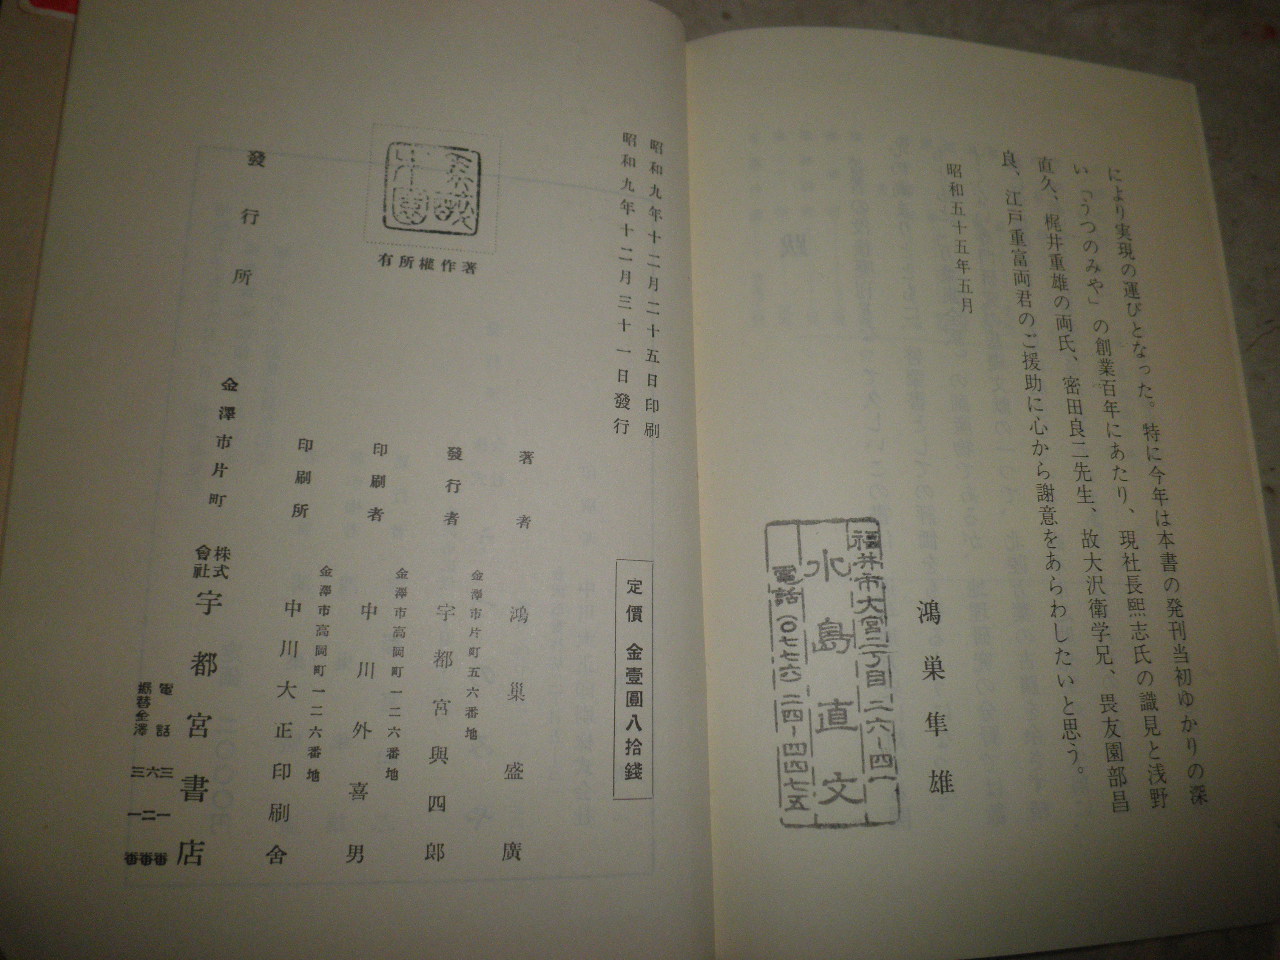 により実現の運びとなった。特に今年は本書の発刊当初ゆかりの深
い「うつのみや」の創業百年にあたり、現社長熙志氏の識見と浅野
直久、梶井重雄の両氏、密田良二先生、故大沢衛学兄、畏友園部昌
良、江戸重富両君のご援助に心から謝意をあらわしたいと思う。
昭和五十五年五月
鴻巣隼雄
福井市大宮二丁目二六-四一
水島直文
電話(〇七七六)二四-四四七五
昭和九年十二月二十五日印刷
昭和九年十二月三十一日發行
定價 金壹圓八拾錢
著作權所有
著者 鴻巢盛廣
金澤市片町五六番地
發行者 宇都宮與四郎
金澤市高岡町一二六番地
印刷者 中川外喜男
金澤市高岡町一二六番地
印刷所 中川大正印刷舍
發行所
金澤市片町 株式會社 宇都宮書店
電話
振替金澤